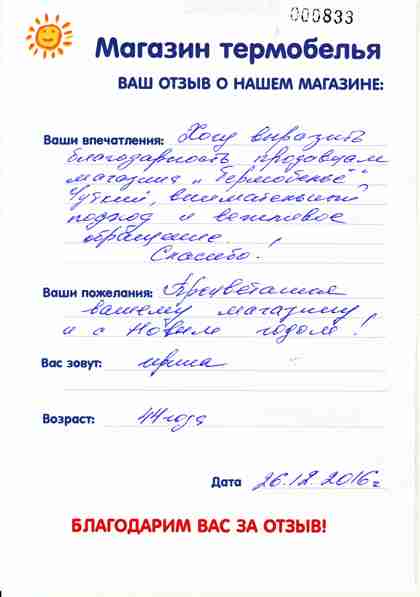 000833
Магазин термобелья
ВАШ ОТЗЫВ О НАШЕМ МАГАЗИНЕ:
Ваши впечатления: Хочу выразить
благодарность продавцам
магазина „Термобельё".
Чуткий, внимательный
подход и вежливое
обращение.
Спасибо!
Ваши пожелания: Процветания
вашему магазину
и с Новым годом!
Вас зовут: ирина
Возраст: 44 года
Дата 26.12.2016 г
БЛАГОДАРИМ ВАС ЗА ОТЗЫВ!